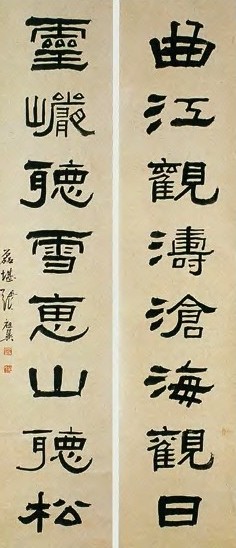 曲江觀濤滄海觀日
靈巖聽雪惠山聽松
張祖翼